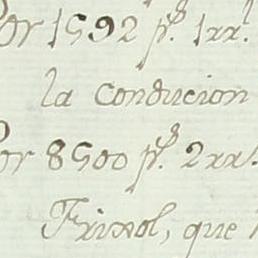 Por 1592 p.s 1 rr.l
la conducion
Por 8500 p.s 2 rr.s
Frixol, que